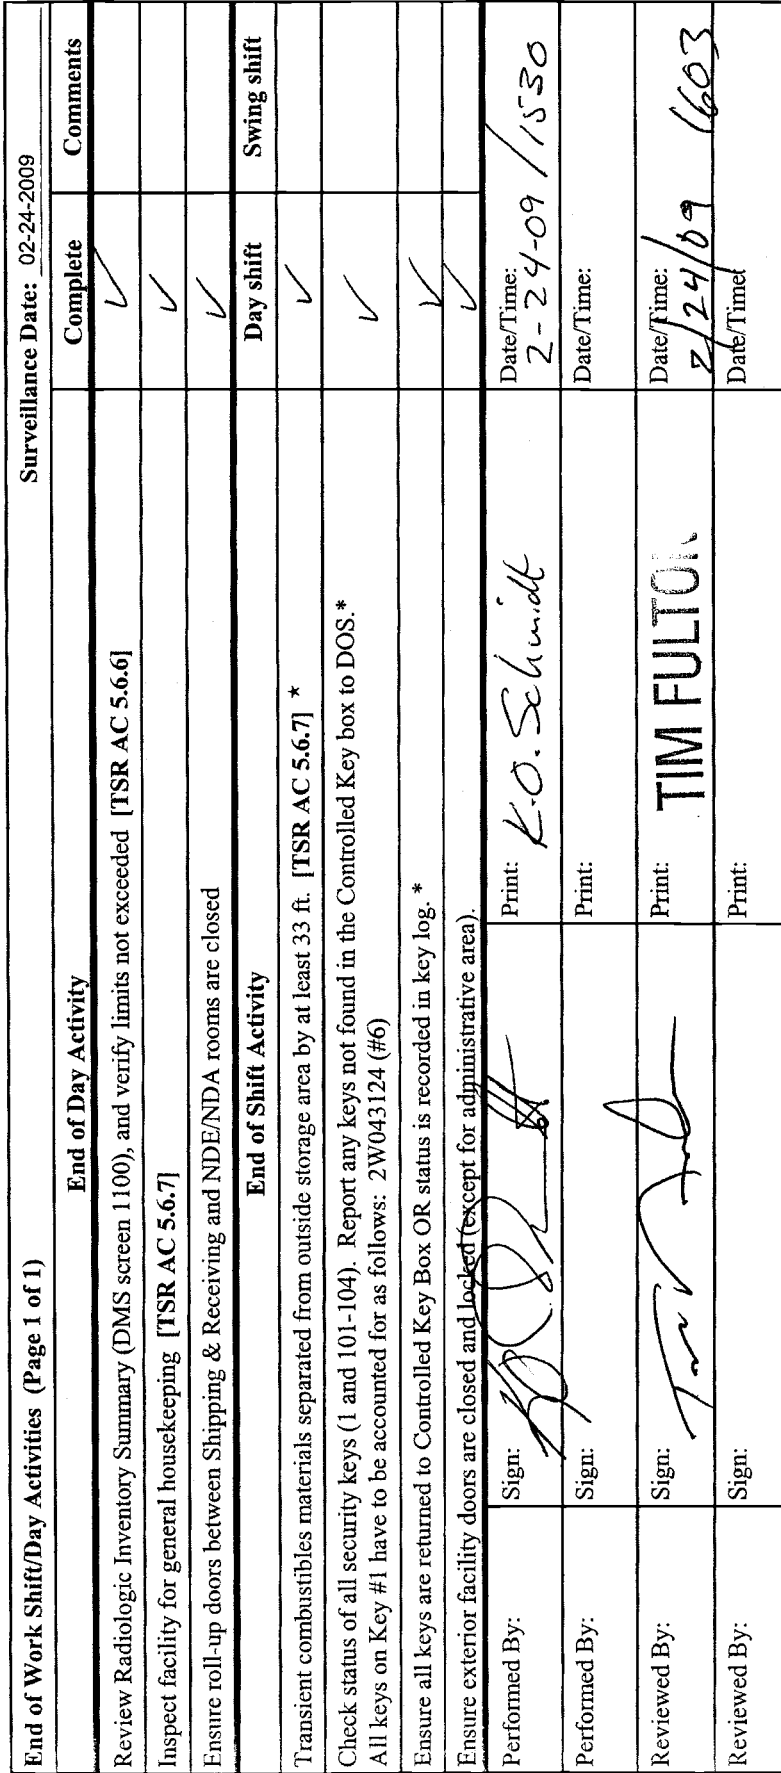 End of Work Shift/Day Activities (Page 1 of 1) Surveillance Date: 02-24-2009
End of Day Activity Complete Comments
Review Radiologic Inventory Summary (DMS screen 1100), and verify limits not exceeded [TSR AC 5.6.6] ✓
Inspect facility for general housekeeping [TSR AC 5.6.7] ✓
Ensure roll-up doors between Shipping & Receiving and NDE/NDA rooms are closed ✓
End of Shift Activity Day shift Swing shift
Transient combustibles materials separated from outside storage area by at least 33 ft. [TSR AC 5.6.7] * ✓
Check status of all security keys (1 and 101-104). Report any keys not found in the Controlled Key box to DOS.* ✓
All keys on Key #1 have to be accounted for as follows: 2W043124 (#6)
Ensure all keys are returned to Controlled Key Box OR status is recorded in key log. * ✓
Ensure exterior facility doors are closed and locked (except for administrative area). ✓
Performed By: Sign: Print: K.O. Schmidt Date/Time: 2-24-09 / 1530
Performed By: Sign: Print: Date/Time:
Reviewed By: Sign: Print: TIM FULTON Date/Time: 2/24/09 1603
Reviewed By: Sign: Print: Date/Time: